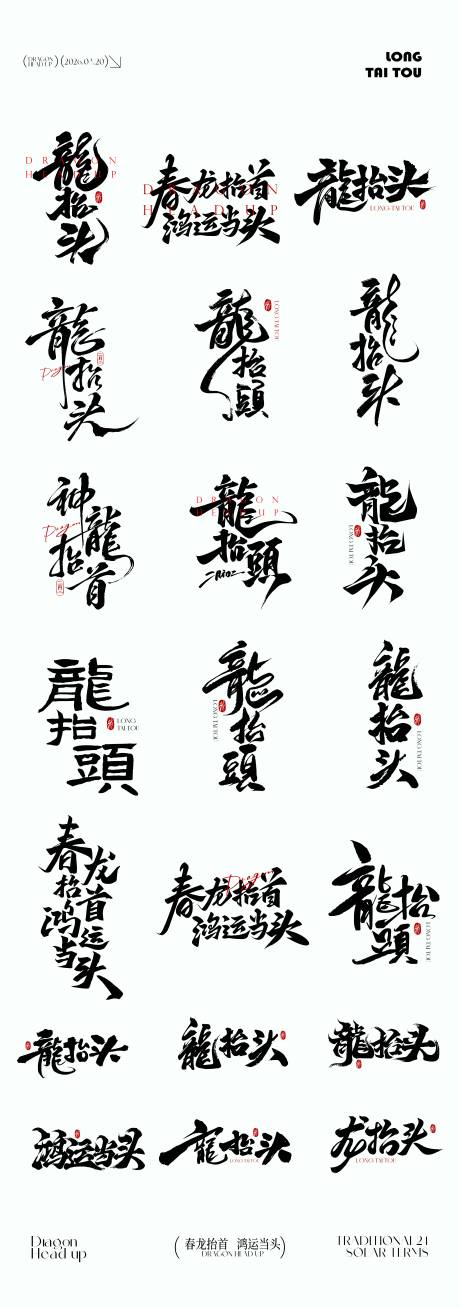 (DRAGON HEAD UP) (2026.03.20)
LONG
TAI TOU
龍抬头
DRAGON
HEAD UP
春龙抬首
鸿运当头
DRAGON
HEAD UP
龍抬头
LONG TAI TOU
龍抬头
Dragon
龍抬頭
LONG TAI TOU
龍抬头
神龍抬首
Dragon
龍抬頭
DRAGON
HEAD UP
龍抬头
LONG TAI TOU
龍抬頭
LONG
TAI TOU
龍抬頭
LONG TAI TOU
龍抬头
LONG TAI TOU
春龙抬首
鸿运当头
春龙抬首
鸿运当头
Dragon
龍抬頭
LONG TAI TOU
龍抬头
龍抬头
龍抬头
鸿运当头
龍抬头
LONG TAI TOU
龙抬头
LONG TAI TOU
Dragon
Head up
(春龙抬首 鸿运当头)
DRAGON HEAD UP
TRADITIONAL 24
SOLAR TERMS